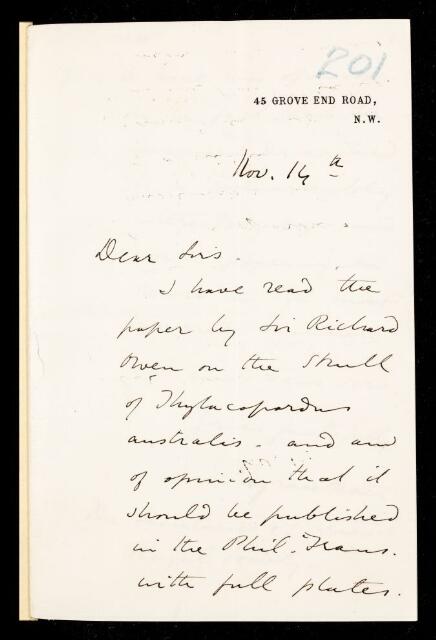 201
45 GROVE END ROAD,
N.W.
Nov. 14th
Dear Sirs.
I have read the
paper by Sir Richard
Owen on the Skull
of Thylacopardus
australis. and am
of opinion that it
should be published
in the Phil. Trans.
with full plates.